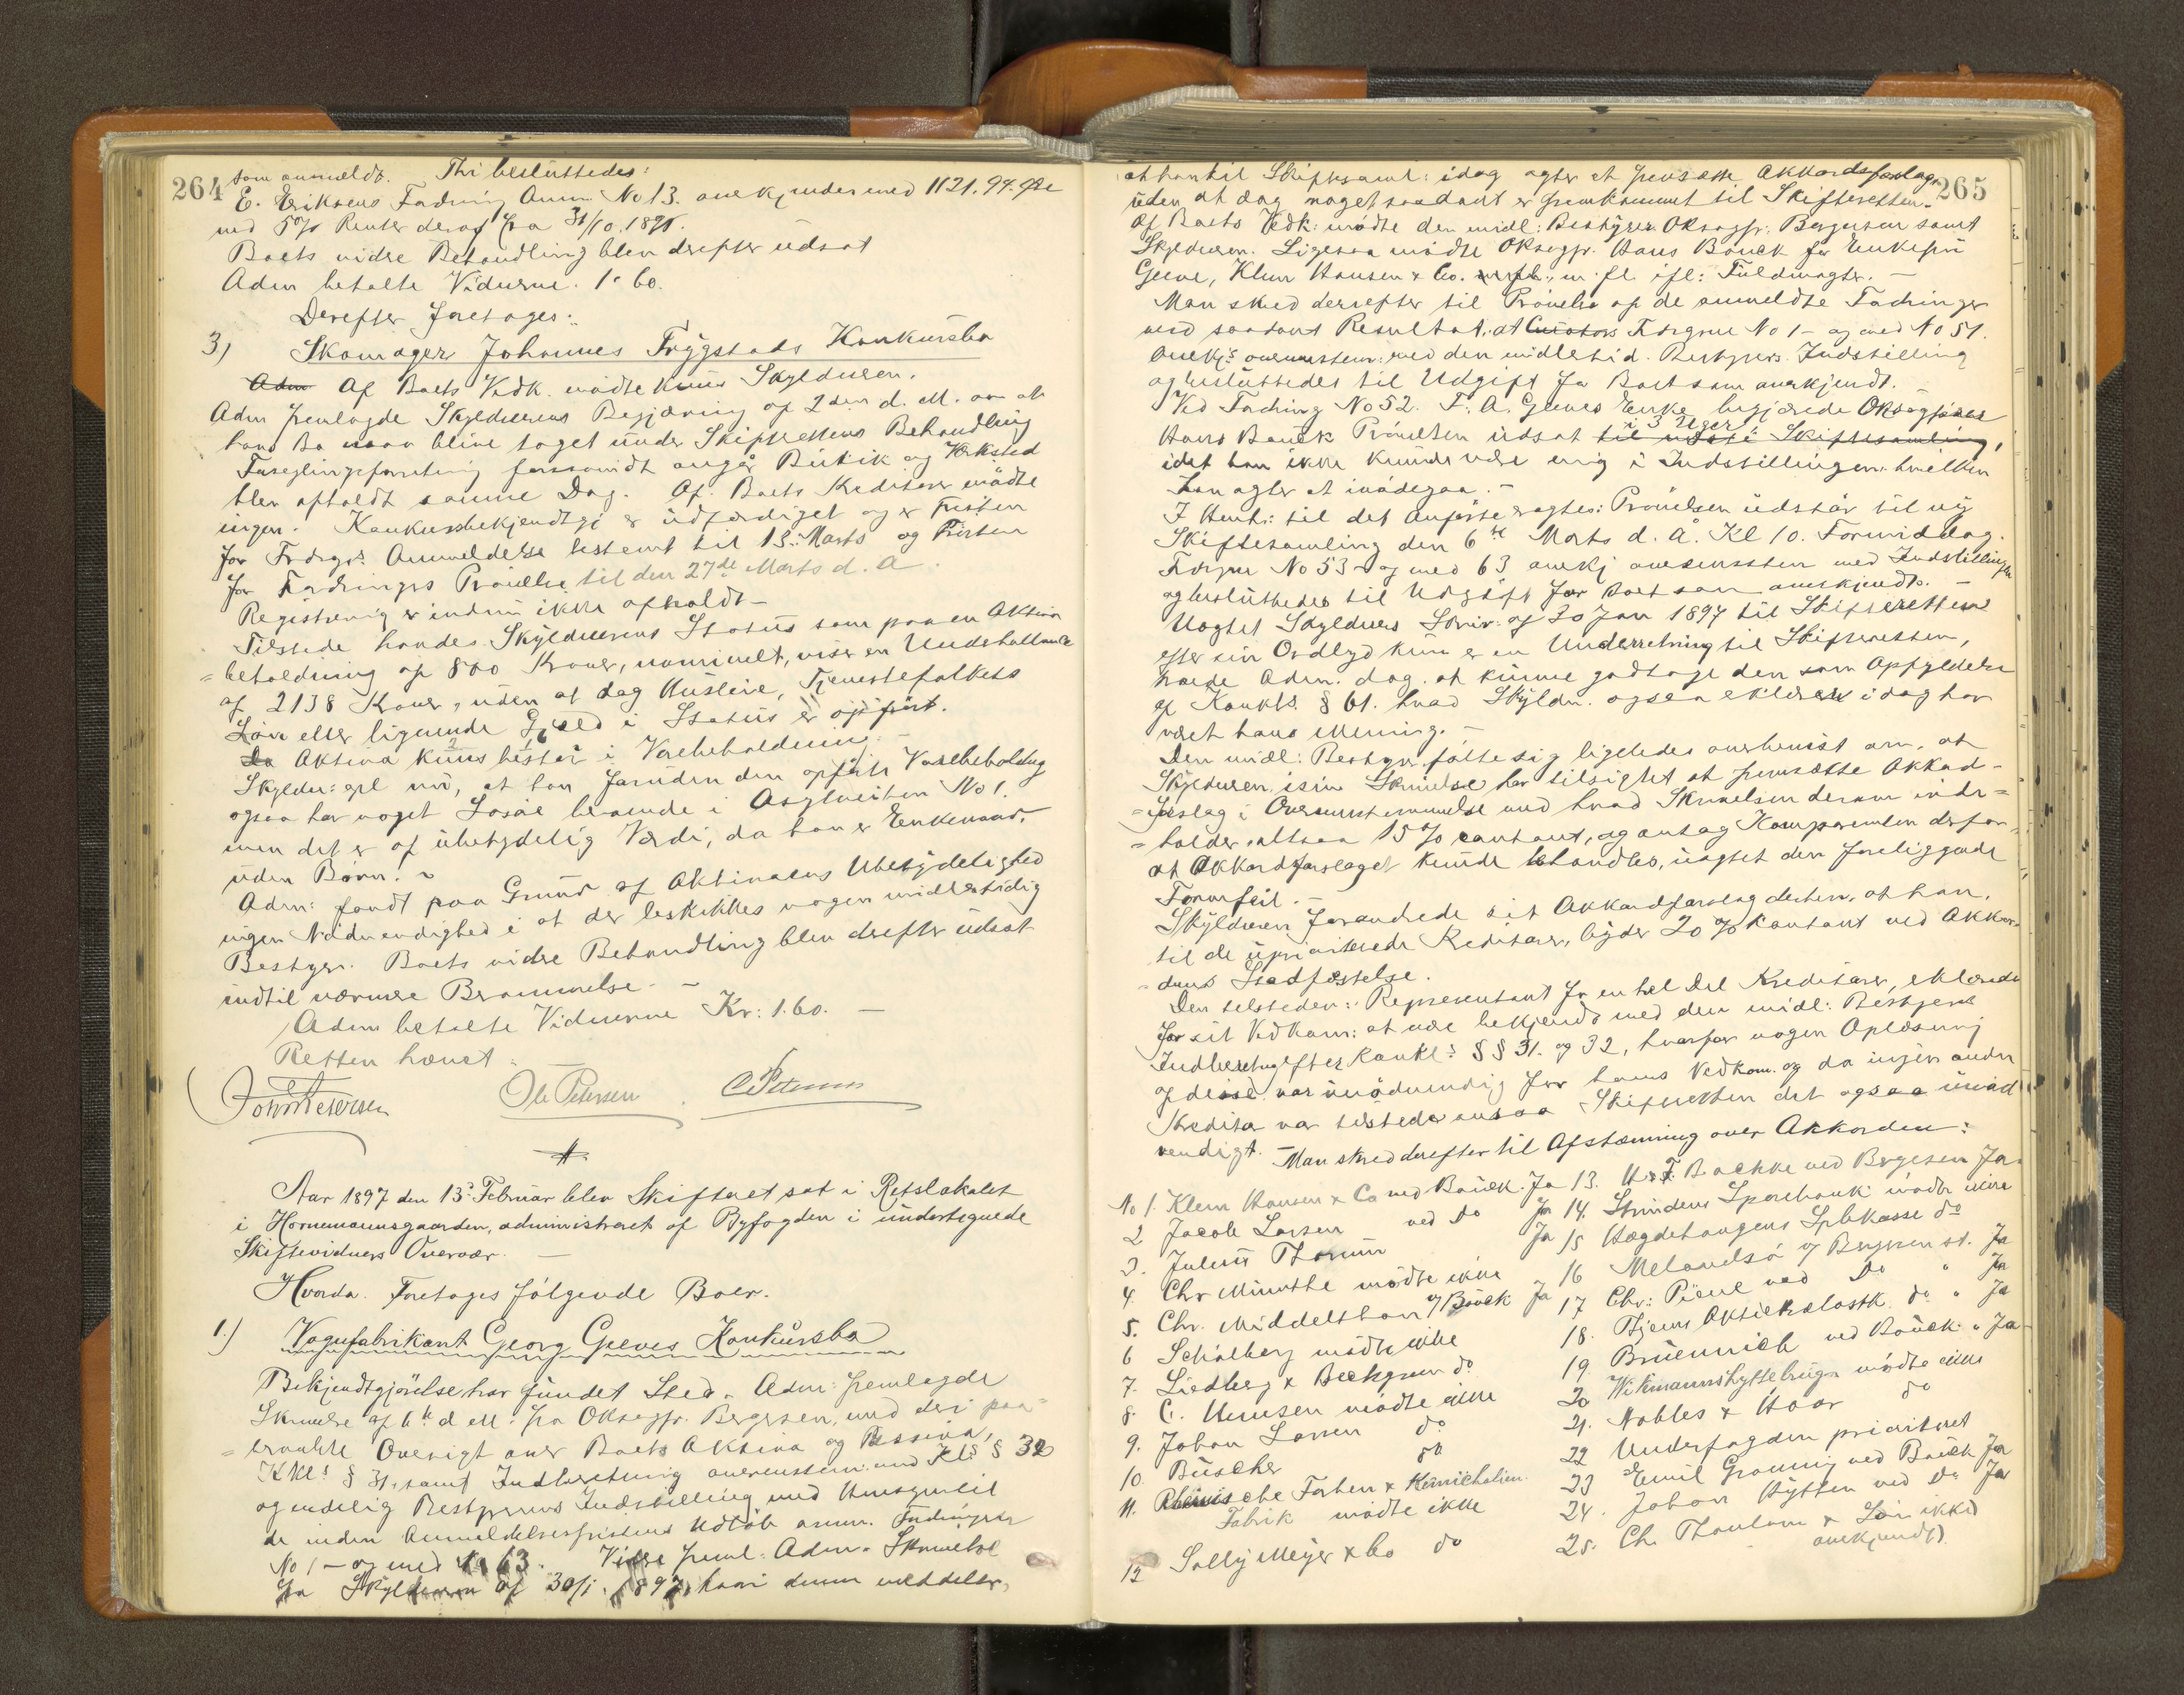 264
som anmeldt. Thi besluttedes:
E. Eriksens Fadring Anm No 13. anerkjendes med 1121.94. Øre
med 5% Renter deraf fra 31/10.1895.
Boets vidre Behandling blev derefter udsat
Adm betalte Vidnerne. 1.60.
Derefter foretages:
3) Skomager Johannes Frygstads Konkursbo
Af Boets Vedk. mødte kuns Skyldneren.
Adm fremlagde Skyldnerens Begjæring af 2den d. M. om at
hans Bo maa blive taget under Skifterettens Behandling
Forseglingsforretning forsaavidt angår Butik og Verksted
blev afholdt samme Dag. Af Boets Kreditorer mødte
ingen. Konkursbekjendtgj er udfærdiget og er Fristen
for Fordrgs. Anmeldelse bestemt til 13. Marts og Fristen
for Fordringers Prøvelse til den 27de Marts d. A.
Registrering er endnu ikke afholdt –
Tilstede havdes Skyldnerens Status som paa en Aktiva
= beholdning af 800 Kroner, nominelt, viser en Underballance
af 2138 Kroner, uden at dog Husleie, Tjenestefolkets
Løn eller lignende Gjæld i Status er opført.
Da Aktiva kuns består i Varebeholdning –
Skyldn: opl nu, at han foruden den opførte Varebeholdng
ogsaa har noget Losøre beroende i Asylveiten No 1.
men det er af ubetydelig Værdi, da han er Enkemand
uden Børn. –
Adm: fandt paa Grund af Aktivaens Ubetydelighed
ingen Nødvendighed i at der beskikkes nogen midlertidig
Bestyrer. Boets vidre Behandling blev derefter udsat
indtil nærmere Berammelse. –
Adm betalte Vidnerne Kr: 1.60. –
Retten hævet:
John Petersen Ole Petersen. C Petersen
Aar 1897 den 13de Februar blev Skifteret sat i Retslokalet
i Hornemannsgaarden, administreret af Byfogden i undertegnede
Skiftevidners Overvær. –
Hvorda. Foretages følgende Boer.
1.) Vognfabrikant Georg Greves Konkursbo
Bekjendtgjørelse har fundet Sted. Adm: fremlagde
Skrivelse af 6te d M: fra Oksagfr. Bergersen, med deri paa=
= beraabte Oversigt over Boets Aktiva og Passiva,
Kkl: § 31, samt Indberetning overensstem: med Kl: § 32
og endelig Bestyrerens Indstilling med Hensyn til
de inden Anmeldelsesfristens Udløb anm. Fordringer
No 1 – og med No 63. Vidre freml: Adm. Skrivelse
fra Skyldneren af 30/1. 1897, hvori denne meddeler,
265
at han til Skiftesaml: idag agter at fremsætte Akkordsforslag
uden at dog noget saadant er fremkommet til Skifteretten.
Af Boets Vedk: mødte den midl: Bestyrer Oksagfr. Bergersen samt
Skyldneren. Ligesaa mødte Oksagfr. Hans Bauck for Enkefru
Greve, Klem Hansen & Co. m. fl. ifl: Fuldmagter. –
Man skred derrefter til Prøvelse af de anmeldte Fadringer
med saadant Resultat: at Fordrgrne No 1 – og med No 51.
anerkj: overensstem: med den midletid. Bestyrers Indstilling
og besluttedes til Udgift for Boet som anerkjendt. –
Ved Fadring No 52. F. A. Greves Enke begjærede Oksagfører
Hans Bauck Prøvelsen udsat i 3 Uger til næste Skiftesamling,
idet han ikke kunde være enig i Indstillingen: hvilken
han agter at imødegaa. –
I Henh: til det Anførte vagtes: Prøvelsen udstår til ny
Skiftesamling den 6te Marts d. Å. Kl 10. Formiddag.
Fdrgne No 53 – og med 63 anerkj overensstem med Indstillingen
og besluttedes til Udgift for Boet som anerkjendt. –
Uagtet Skyldners Skriv: af 30 Jan 1897 til Skifteretten
efter sin Ordlyd kun er en Underretning til Skifteretten,
troede Adm. dog. at kunne godtage den som Opfyldelse
af Konkls § 61. hvad Skyldn. ogsaa erklærer i dag har
været hans Mening. –
Den midl: Bestyr. følte sig ligeledes overbevist om, at
Skyldneren i sin Skrivelse har tilsigtet at fremsætte Akkord-
= forslag i Overensstemmelse med hvad Skrivelsen derom inde=
= holder, altsaa 15% contant, og antog Komparenten derfor
at Akkordforslaget kunde behandles, uagtet den foreliggende
Formfeil. –
Skyldneren forandrede sit Akkordforslag derhen, at han,
til de uprioriterede Kreditorer, byder 20% kontant ved Akkor=
= dens Stadfæstelse.
Den tilsteden: Representant for en hel Del Kreditorer, erklærede
for sit Vedkom: at være bekjendt med den midl: Bestyrers
Indberetng efter Konkl: §§ 31. og 32, hvorfor nogen Oplæsning
af disse var unødvendig for hans Vedkom. og da ingen anden
Kreditor var tilstede ansaa Skifteretten det ogsaa unød
vendigt. – Man skred derefter til Afstemning over Akkorden:
No 1. Klem Hansen & Co ved Bauck. Ja
2 Jacob Larsen ved Do Ja
3. Julius Thorum Ja
4. Chr Münthe mødte ikke
5. Chr. Middelthon v/ Bauck Ja
6 Schølberg mødte ikke
7. Liedberg & Beckgren do
8. C. Hemsen mødte ikke
9. Johan Larsen do
10. Büscher do
11. Rheinische Farben & Kemicalien
Fabrik mødte ikke
12 Sally Meyer & Co do
13. H & F Bachke ved Bergesen Ja
14. Strindens Sparebank mødte ikke
15 Hægdehaugens Spbkasse do
16 Melandsø v/ Bergesen st. Ja
17 Chr: Piene ved Do " Ja
18. Trjems Aktieklostk. do " Ja
19 Brüennich ved Bauck " Ja
20 Wikmannshyttebrugn mødte ikke
21. Nobles & Hoar do
22 Underfogden prioriteret
23 Emil Gronning ved Bauck Ja
24. Johan Hytten ved Do Ja
25. Ch. Thaulow & Søn ikke
anerkjendt)